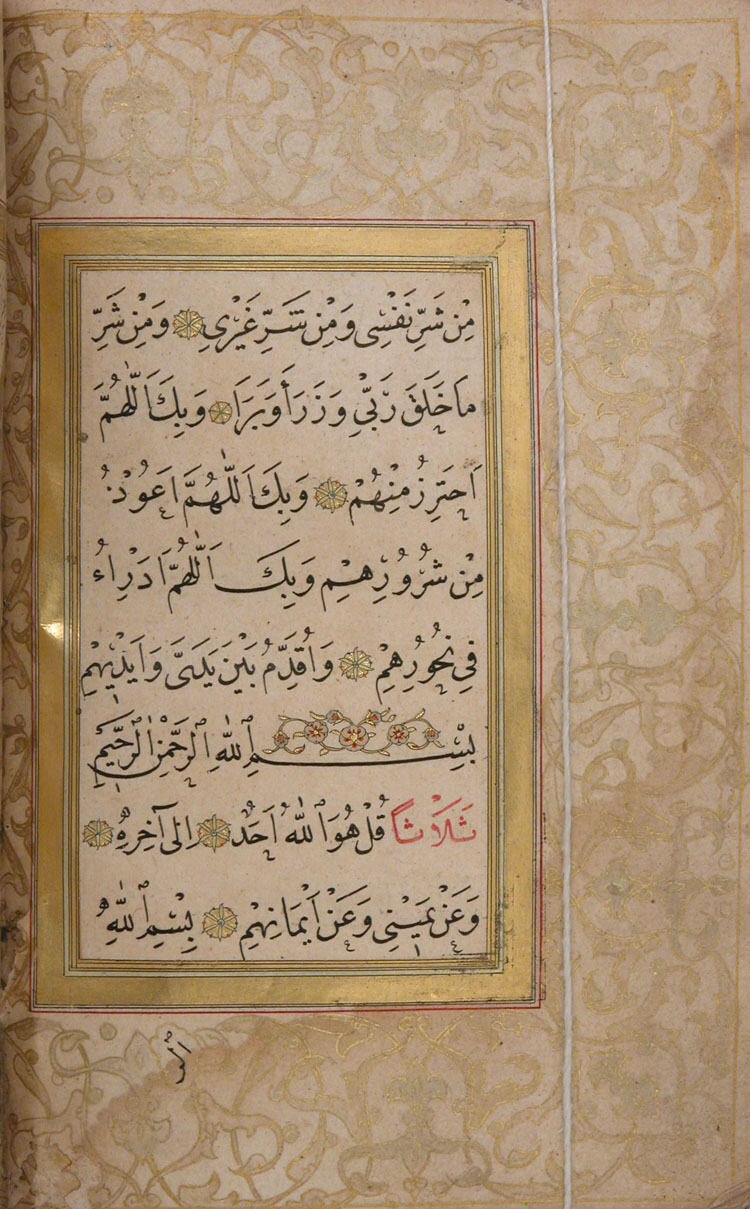 مِنْ شَرِّ نَفْسِى وَمِنْ شَرِّ غَيْرِى وَمِنْ شَرِّ
مَا خَلَقَ رَبِّى وَزَرَأَ وَبَرَاَ وَبِكَ اَللّٰهُمَّ
اَحْتَرِزُ مِنْهُمْ وَبِكَ اَللّٰهُمَّ اَعُوذُ
مِنْ شُرُورِهِمْ وَبِكَ اَللّٰهُمَّ اَدْرَاءُ
فِى نُحُورِهِمْ وَاُقَدِّمُ بَيْنَ يَدَىَّ وَاَيْدِيهِمْ
بِسْمِ ٱللّٰهِ ٱلرَّحْمٰنِ ٱلرَّحِيمِ
ثَلَاثًا قُلْ هُوَ ٱللّٰهُ اَحَدٌ اِلٰى آخِرِهِ
وَعَنْ يَمِينِى وَعَنْ اَيْمَانِهِمْ بِسْمِ ٱللّٰهِ